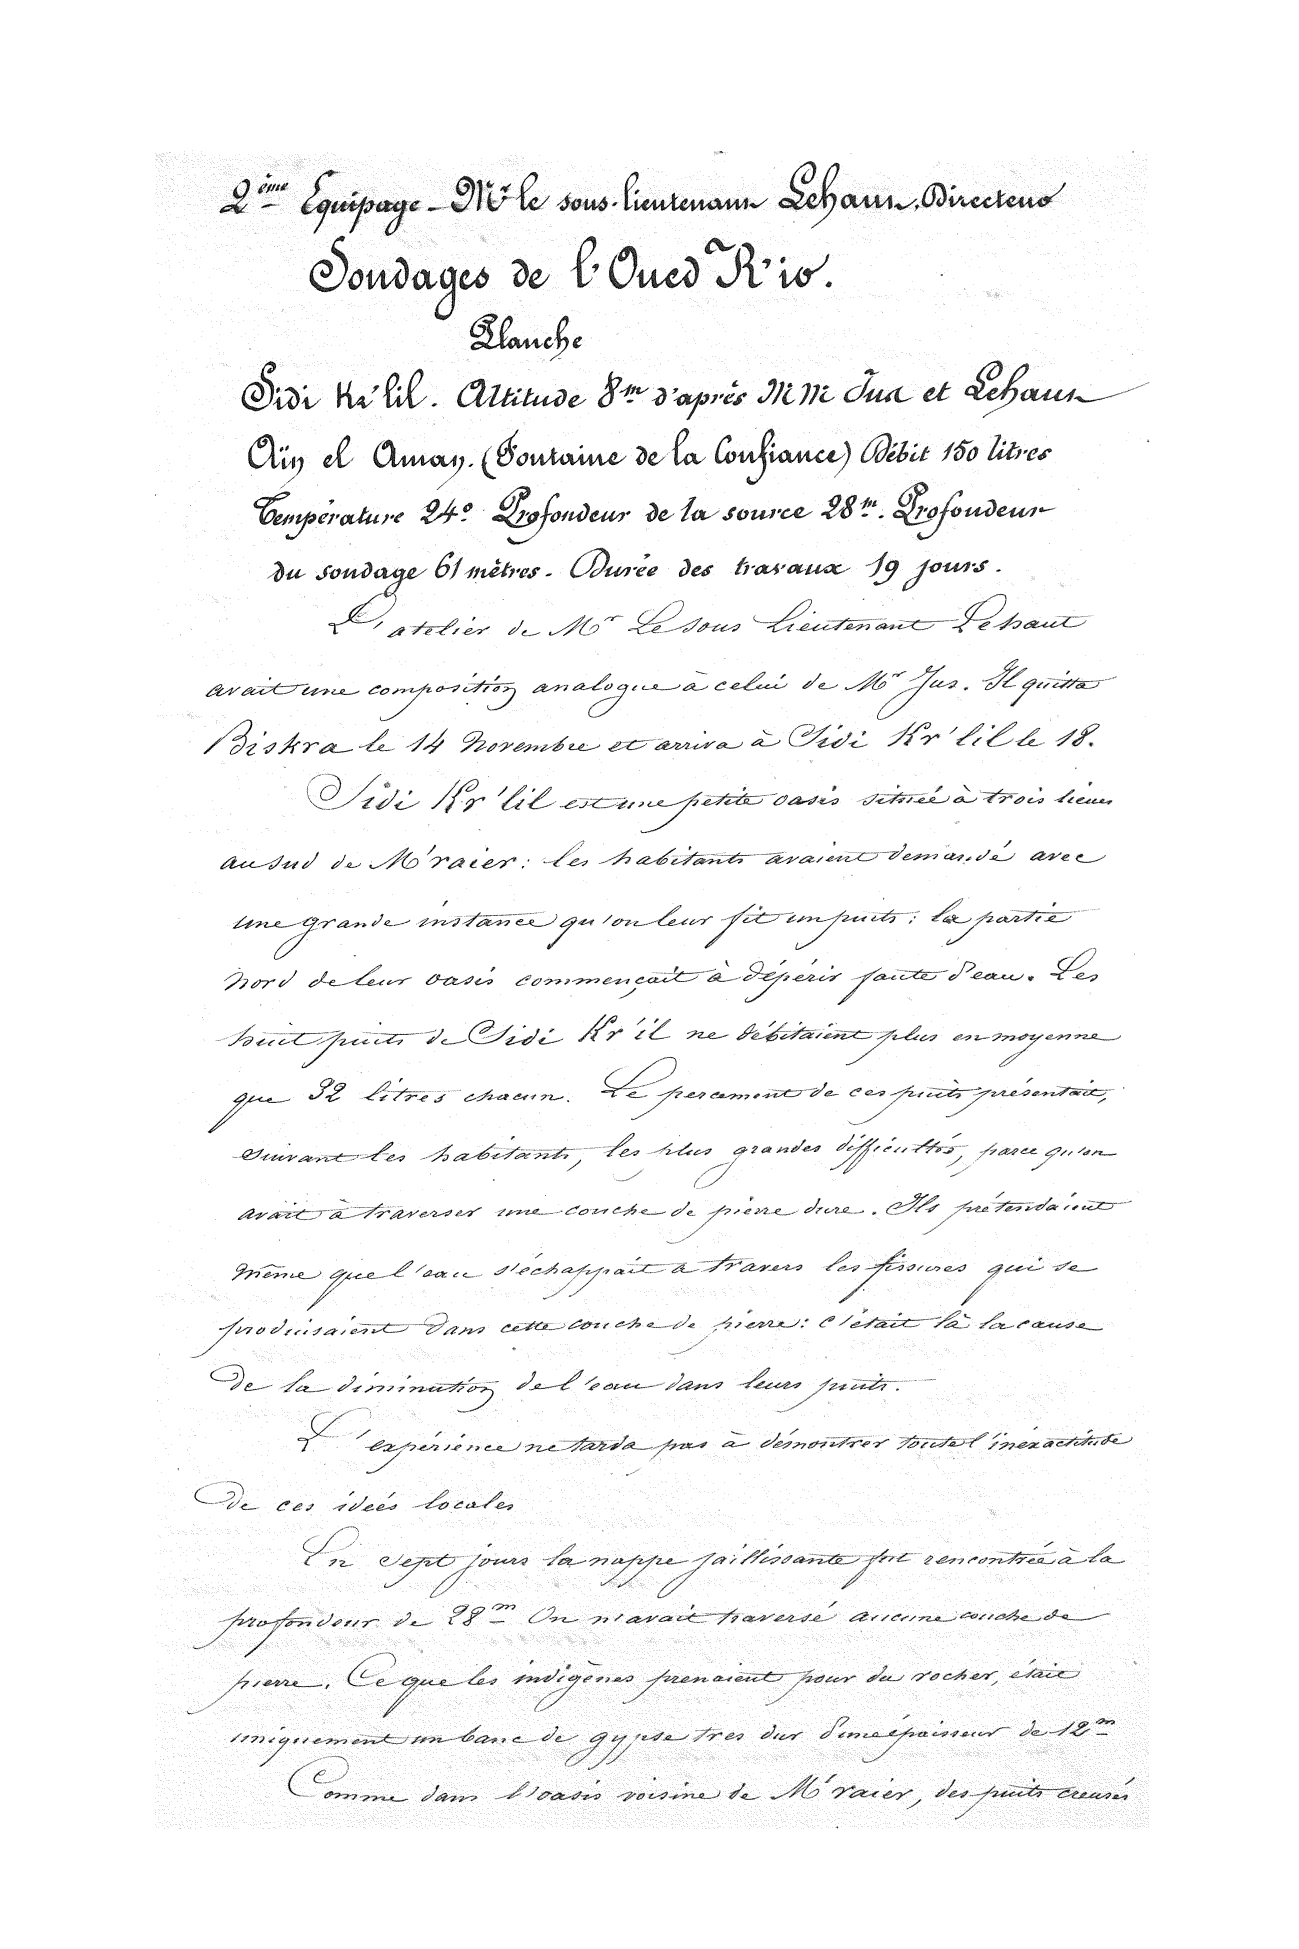 2ème Equipage - Mr le sous-lieutenant Lehaut, Directeur
Sondages de l'Oued R'ir.
Planche
Sidi Kr'lil. Altitude 8m d'après MM Jus et Lehaut
Aïn el Aman. (Fontaine de la Confiance) Débit 150 litres
Température 24° Profondeur de la source 28m. Profondeur
du sondage 61 mètres. Durée des travaux 19 jours.
L'atelier de Mr Le sous Lieutenant Lehaut
avait une composition analogue à celui de Mr Jus. Il quitta
Biskra le 14 Novembre et arriva à Sidi Kr'lil le 18.
Sidi Kr'lil est une petite oasis située à trois lieues
au sud de M'raier: les habitants avaient demandé avec
une grande instance qu'on leur fit un puits: la partie
Nord de leur oasis commençait à dépérir faute d'eau. Les
huit puits de Sidi Kr'il ne débitaient plus en moyenne
que 32 litres chacun. Le percement de ces puits présentait,
suivant les habitants, les plus grandes difficultés, parce qu'on
avait à traverser une couche de pierre dure. Ils prétendaient
même que l'eau s'échappait a travers les fissures qui se
produisaient dans cette couche de pierre: c'était là la cause
de la diminution de l'eau dans leurs puits.
L'expérience ne tarda pas à démontrer toute l'inéxactitude
de ces idées locales
En sept jours la nappe jaillissante fut rencontrée à la
profondeur de 28m On n'avait traversé aucune couche de
pierre. Ce que les indigènes prenaient pour du rocher, était
uniquement un banc de gypse tres dur d'une épaisseur de 12m
Comme dans l'oasis voisine de M'raier, des puits creusés